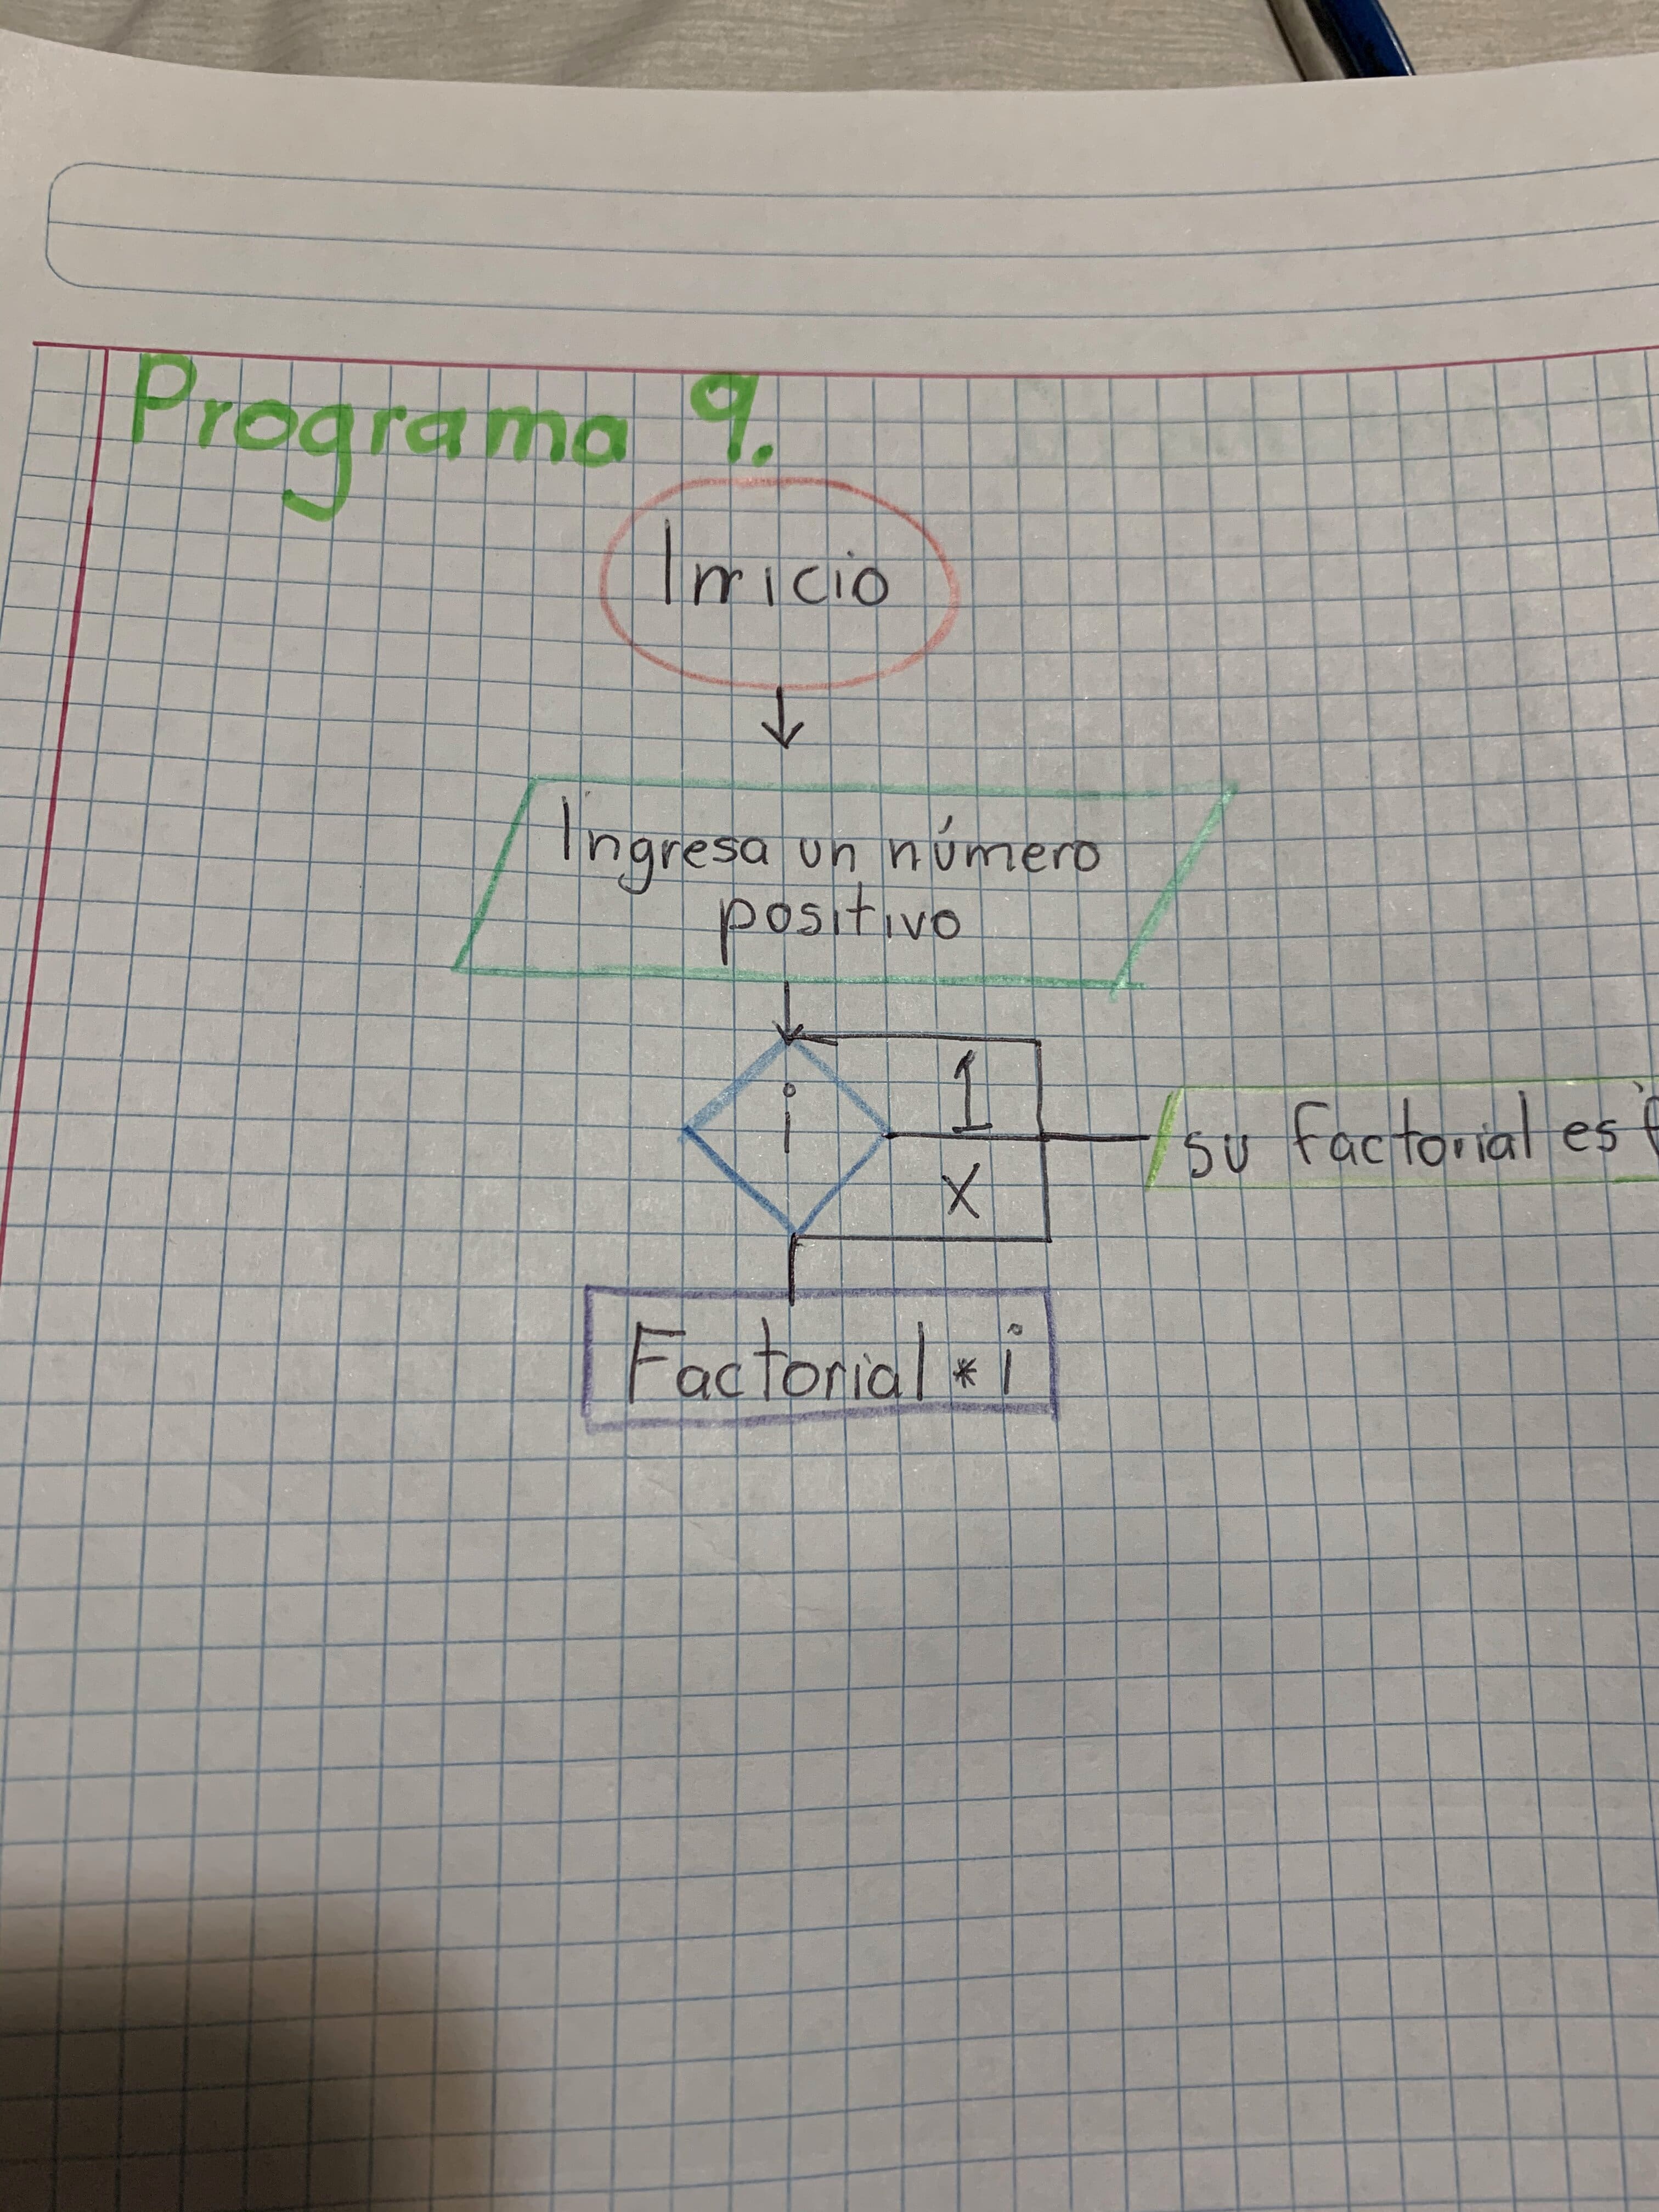 Programa 9.
Inicio
Ingresa un número
positivo
i
1
x
su factorial es
Factorial * i